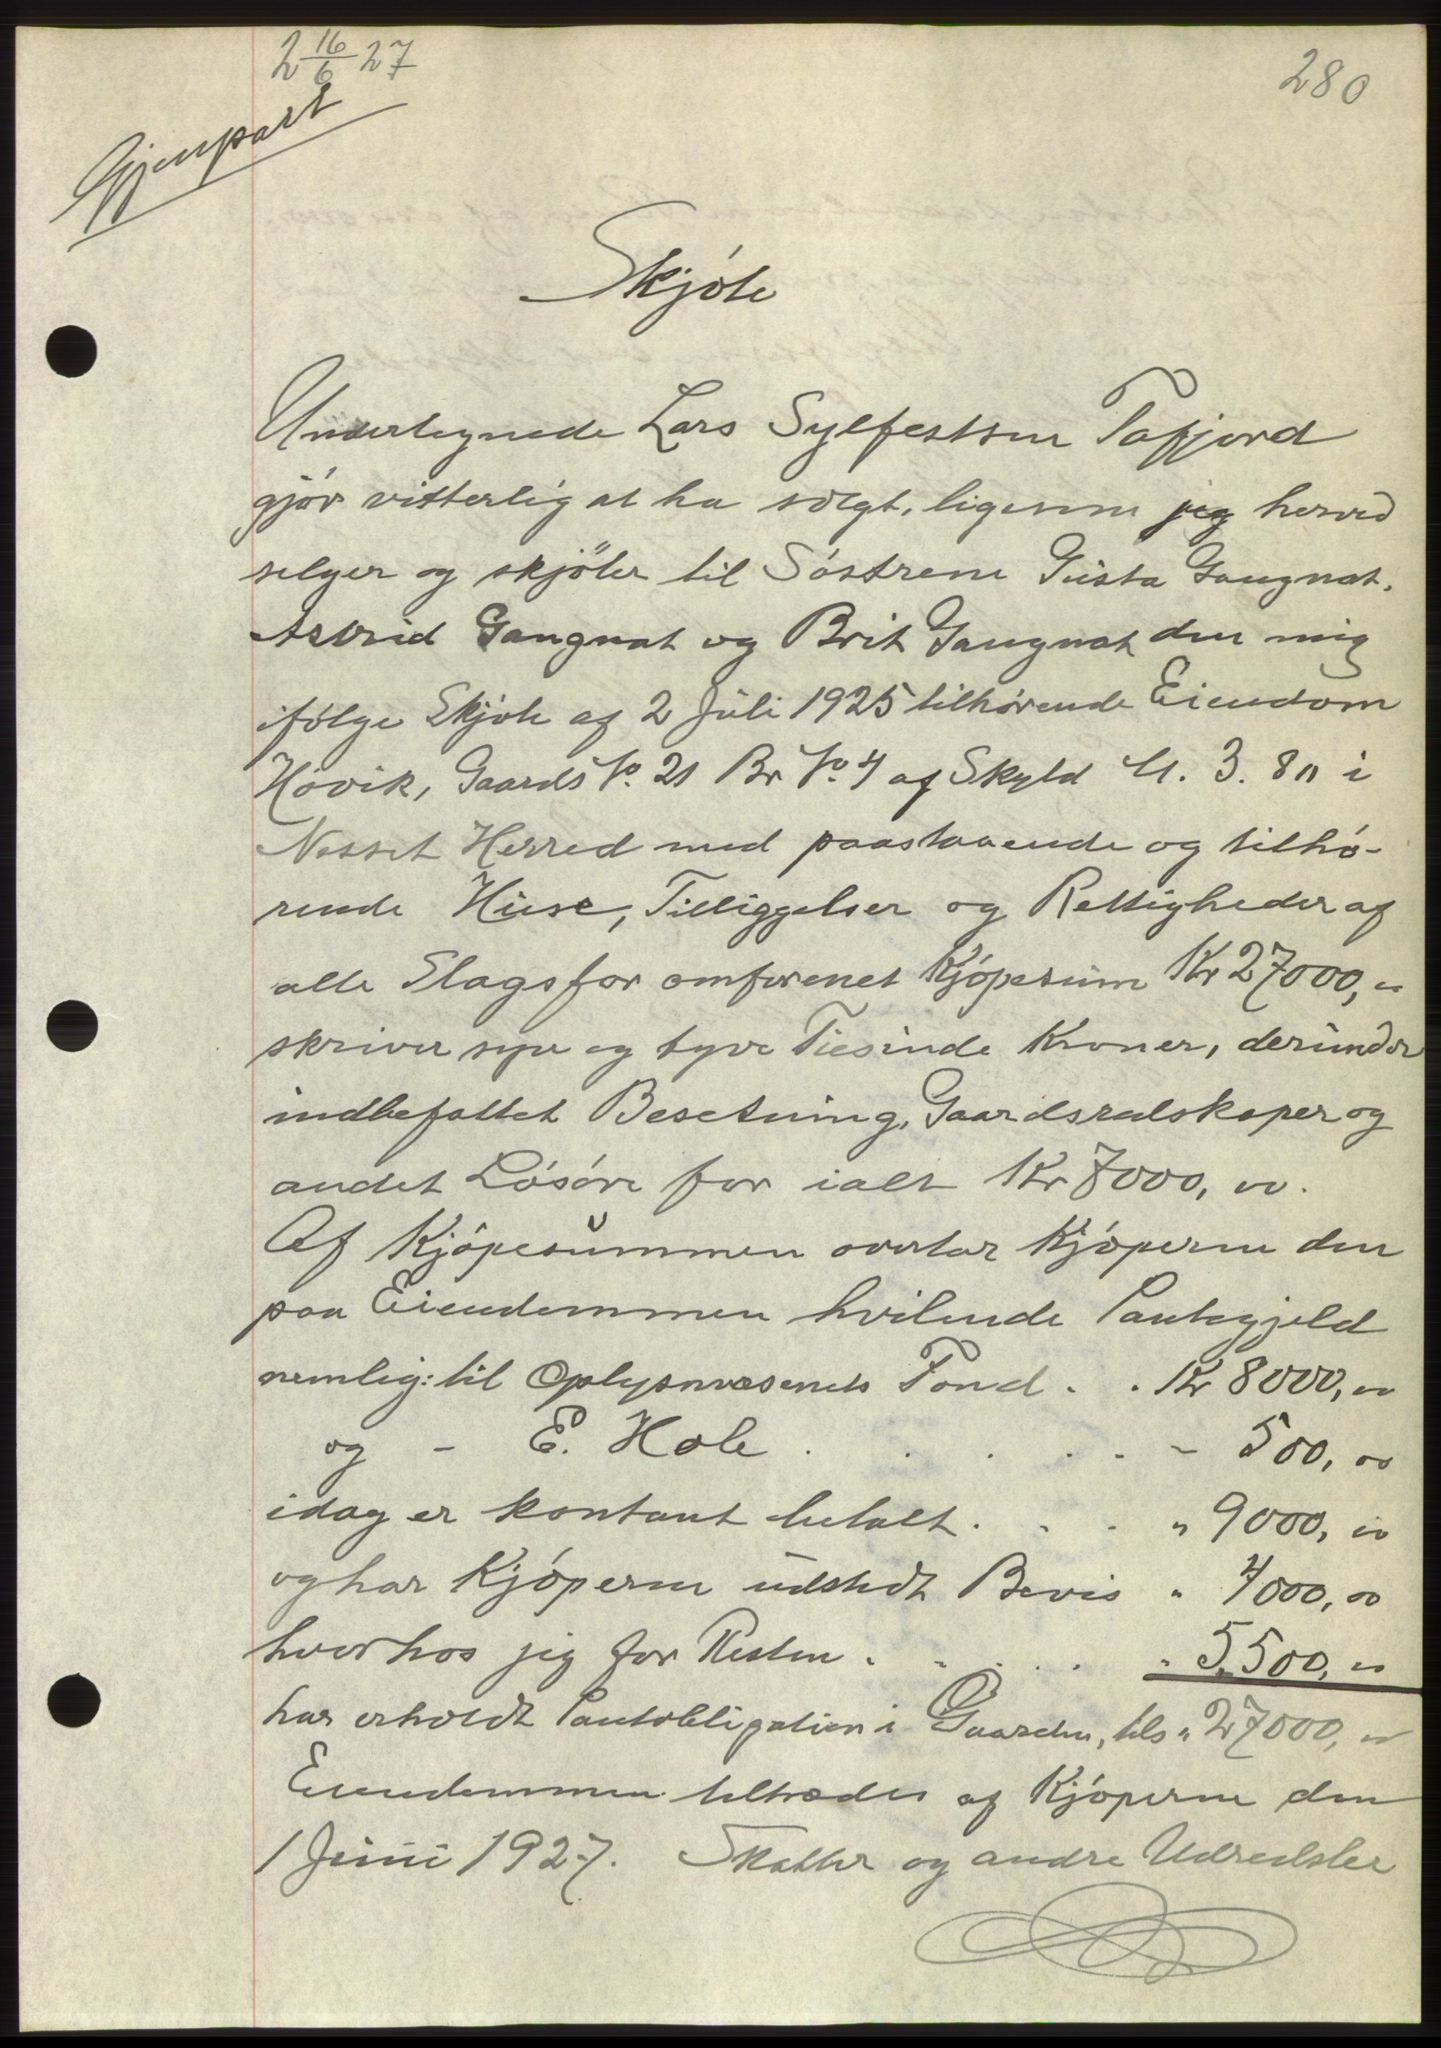 2 16/6 27
280
Gjenpart
Skjöte
Undertegnede Lars Sylfestsen Tafjord
gjör vitterlig at ha solgt, ligesom jeg herved
selger og skjöter til Söstrene Gusta Gaugnat,
Astrid Gangnat og Brit Gaugnat den mig
ifölge Skjöte af 2 Juli 1925 tilhörende Eiendom
Hövik, Gaards No. 21 Br No. 4 af Skyld M. 3. 80 i
Nesset Herred med paastaaende og tilhö-
rende Huse, Tilliggelser og Rettigheder af
alle Slags for omforenet Kjöpesum Kr 27000,00
skriver syv og tyve Tusinde Kroner, derunder
indbefattet Besetning, Gaardsredskaper og
andet Lösöre for ialt Kr 7000,00.
Af Kjöpesummen overtar Kjöperne den
paa Eiendommen hvilende Pantegjeld
nemlig: til Oplysnvæsenets Fond . . Kr 8000,00
og - E. Hole . . . . . - 500,00
idag er kontant betalt . . . " 9000,00
og har Kjöperne udstedt Bevis " 4000,00
hvorhos jeg for Resten . . . . " 5,500,00
har erholdt Pantobligation i Gaarden, tils " 27000,00
Eiendommen tiltrædes af Kjöperne den
1 Juni 1927. Skatter og andre Udredsler